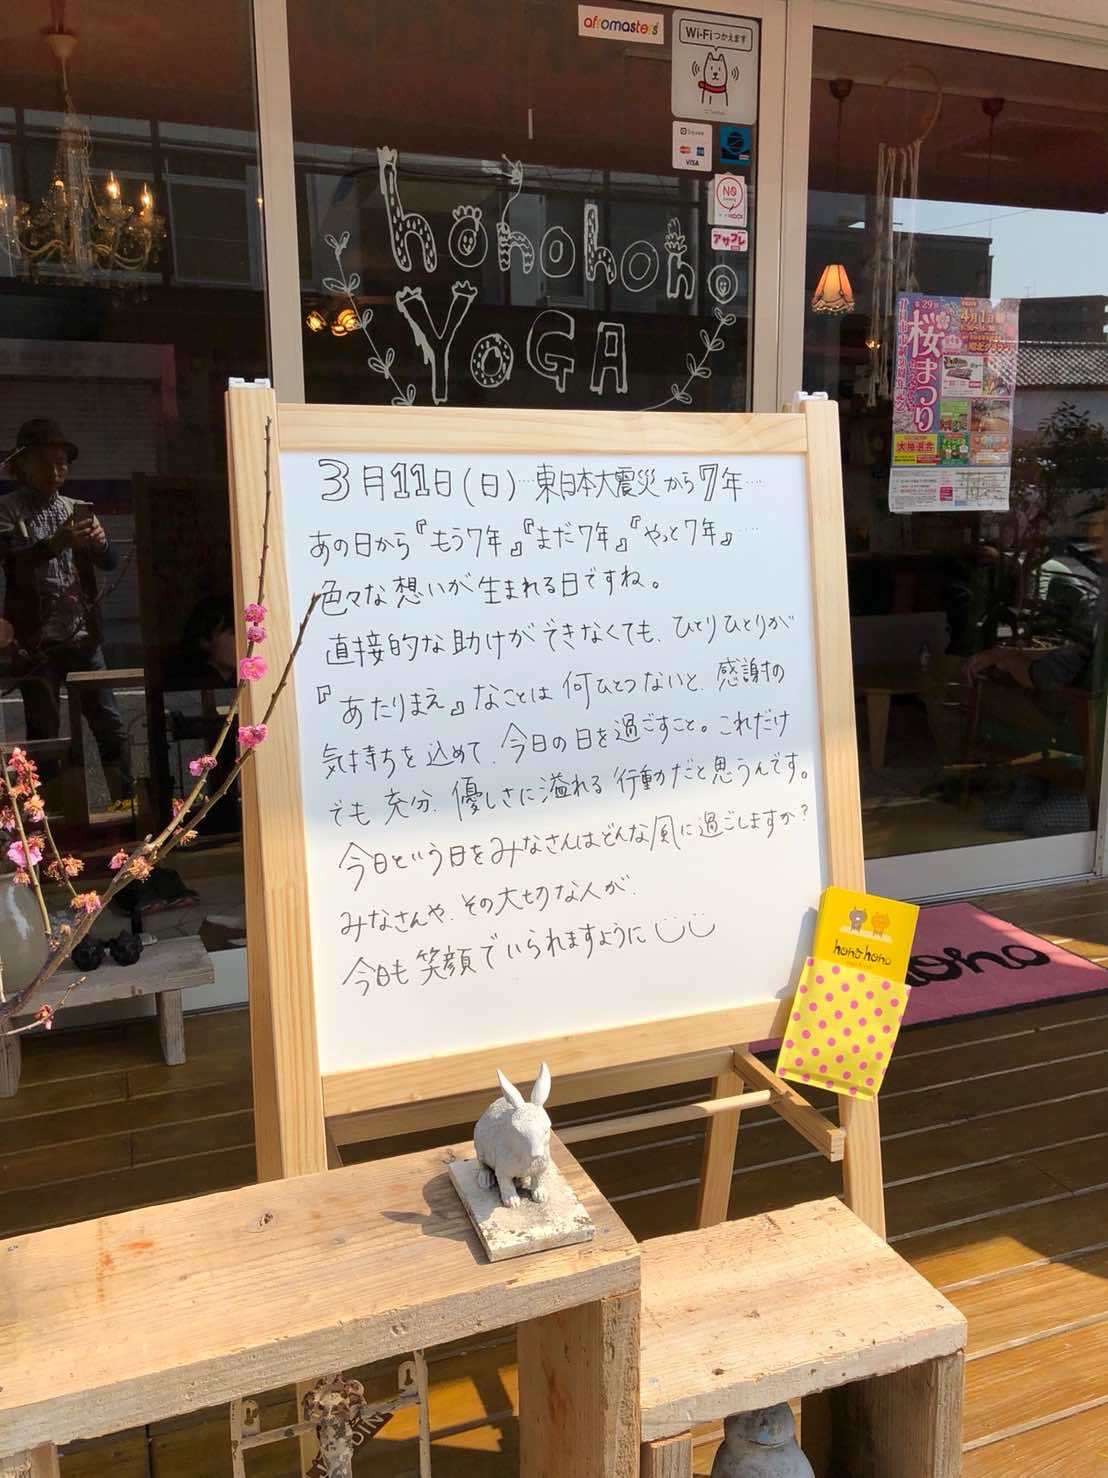 afromasters
Wi-Fiつかえます
Square
VISA
NO
アサプレ
honohono
YOGA
4月1日
桜まつり
大抽選会
3月11日(日)…東日本大震災から7年…
あの日から『もう7年』『まだ7年』『やっと7年』…
色々な想いが生まれる日ですね。
直接的な助けができなくても、ひとりひとりが
『あたりまえ』なことは何ひとつないと、感謝の
気持ちを込めて、今日の日を過ごすこと。これだけ
でも充分、優しさに溢れる行動だと思うんです。
今日という日をみなさんはどんな風に過ごしますか?
みなさんや、その大切な人が、
今日も笑顔でいられますように
honohono
hono